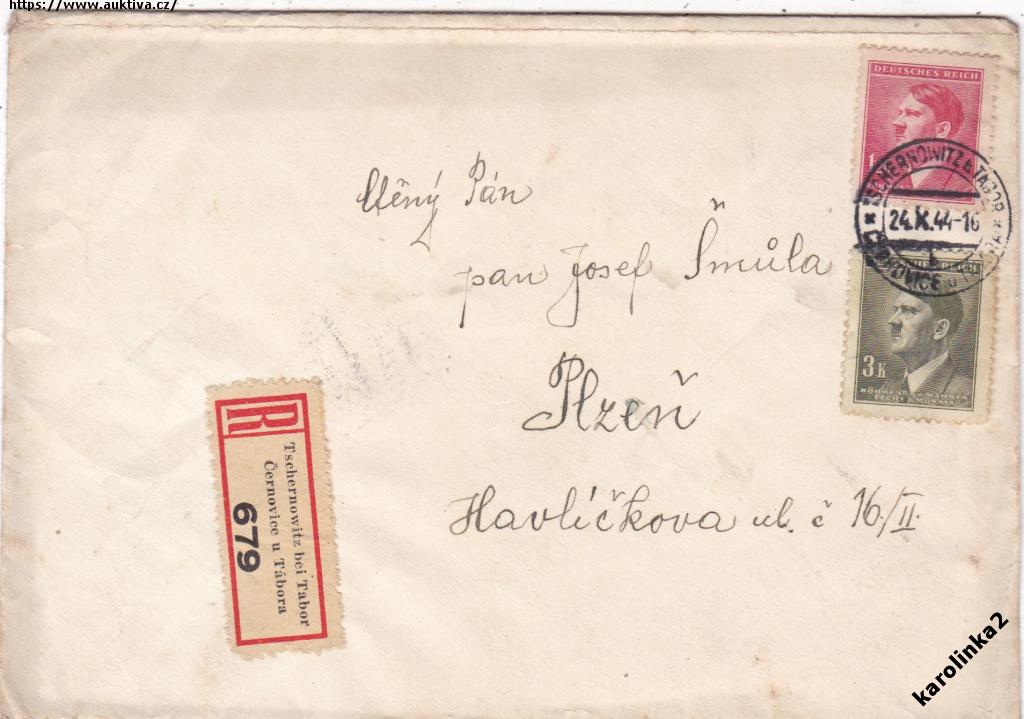 https://www.auktiva.cz/
DEUTSCHES REICH
1
TSCHERNOWITZ b. TABOR
24.X.44-16
b
3K
BÖHMEN u. MÄHREN
ČECHY a MORAVA
Ctěný Pán
pan Josef Šmůla
Plzeň
Havlíčkova ul. č 16./II.
R
Tschernowitz bei Tabor
Černovice u Tábora
679
karolinka2